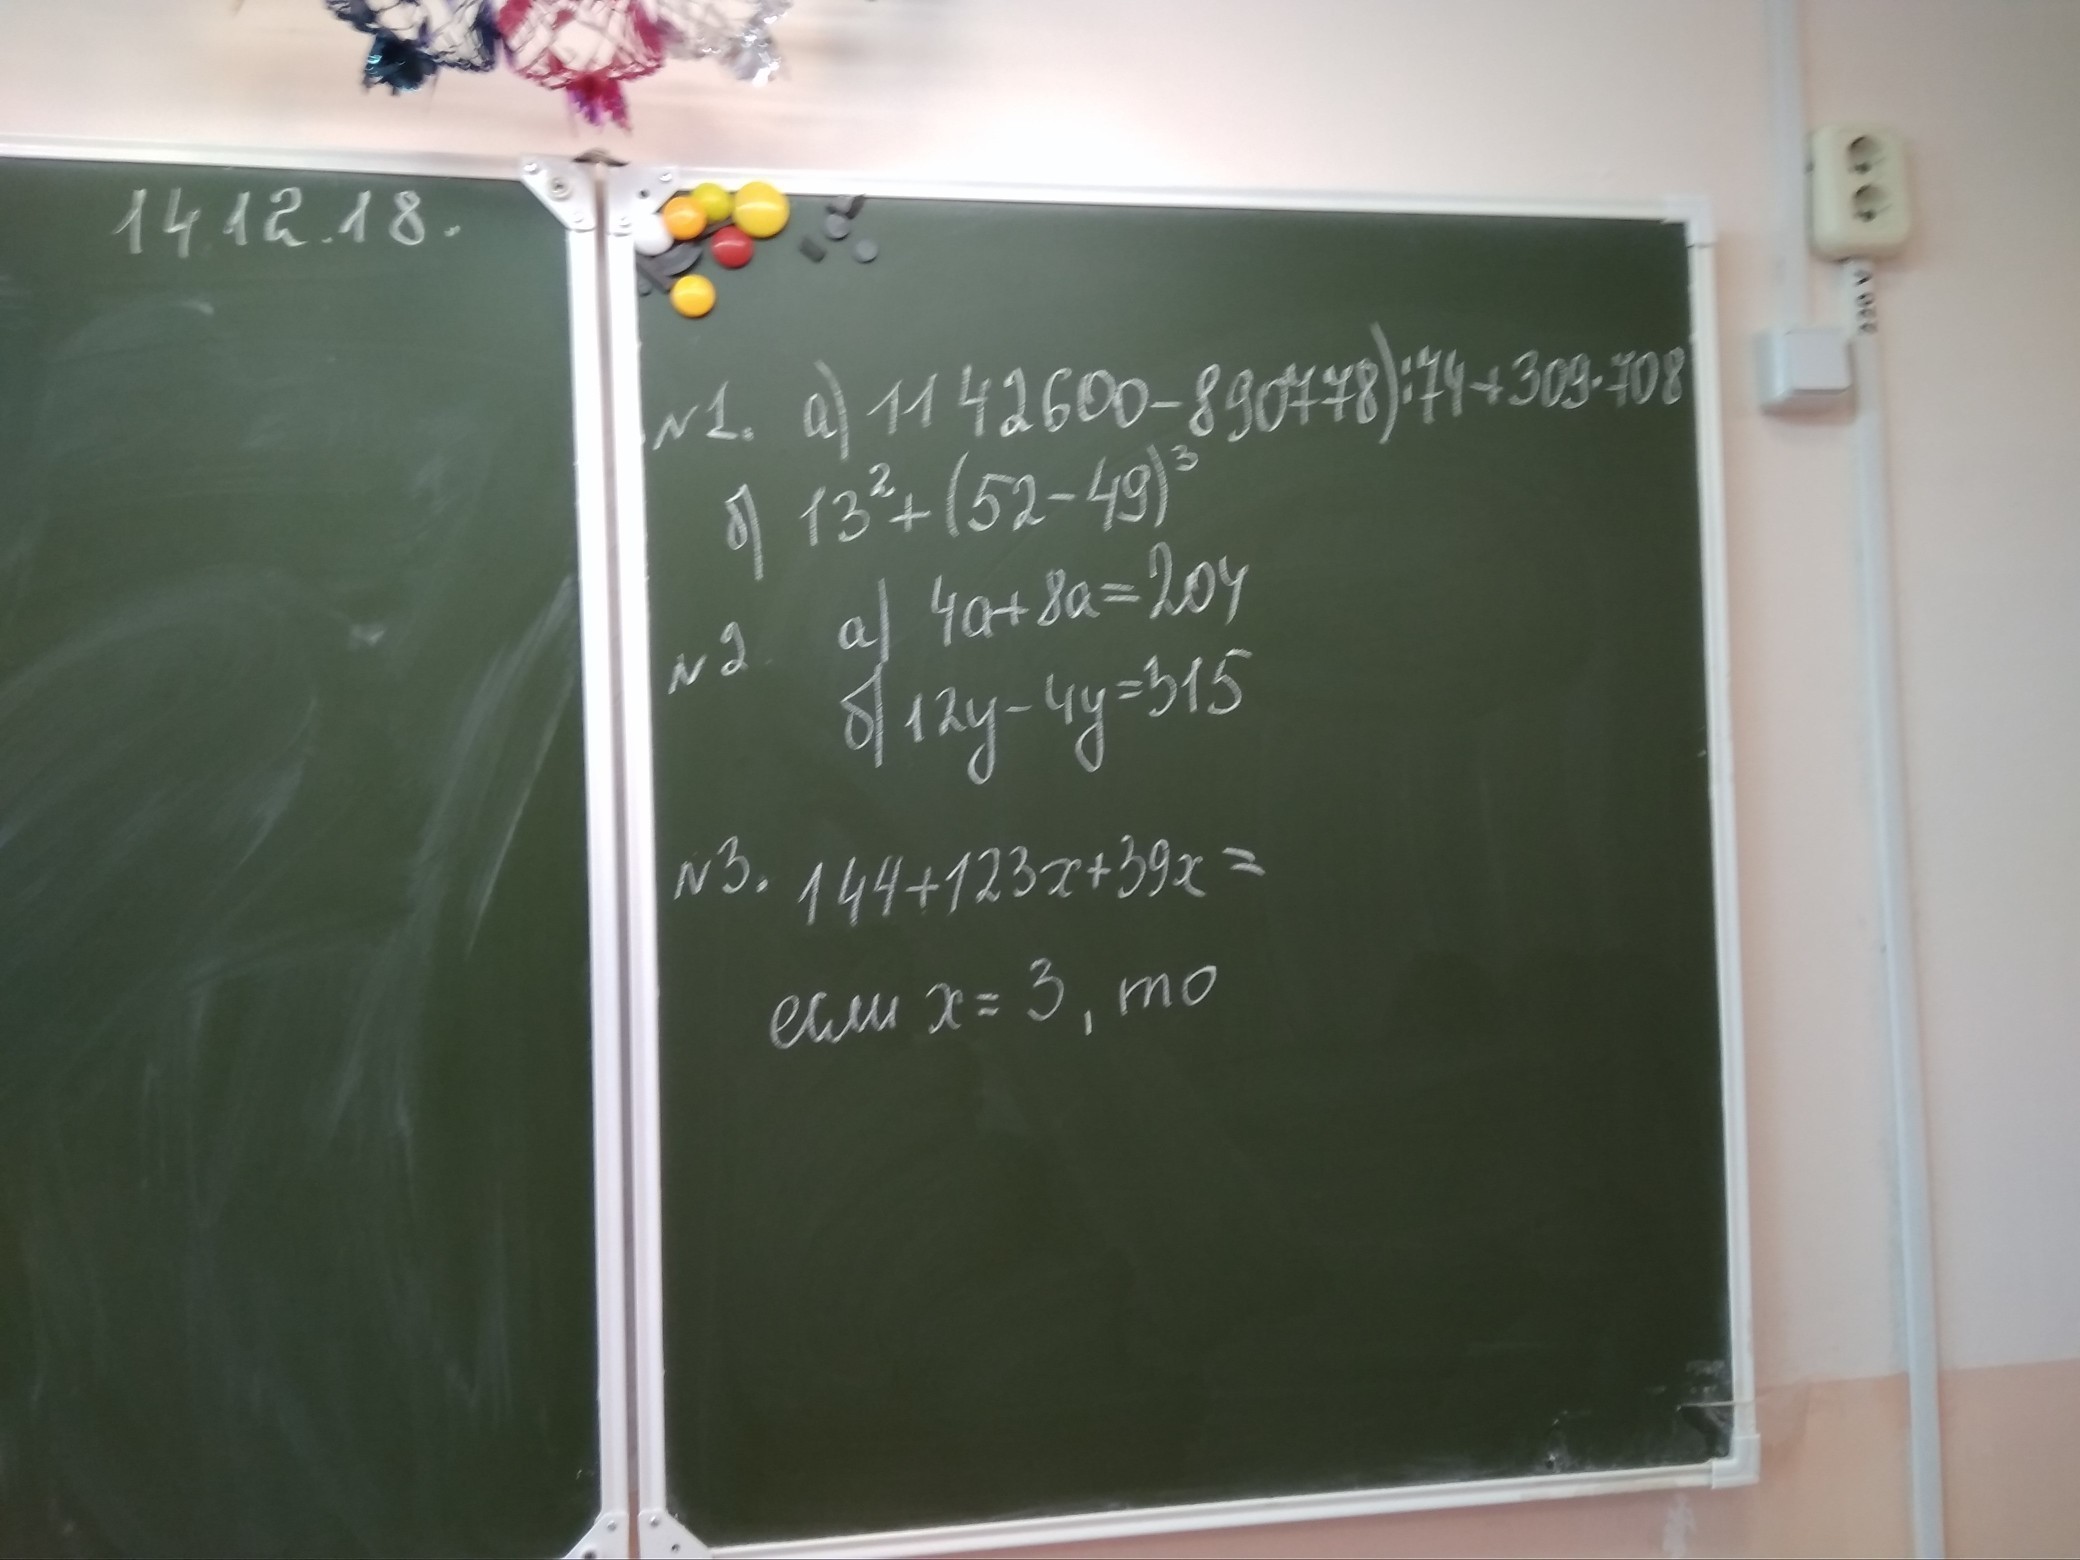 14.12.18.
N1. а) 1142600-890778):74+309·708
б) 13²+(52-49)³
N2 а) 4a+8a=204
б) 12y-4y=315
N3. 144+123x+39x=
если x=3, то